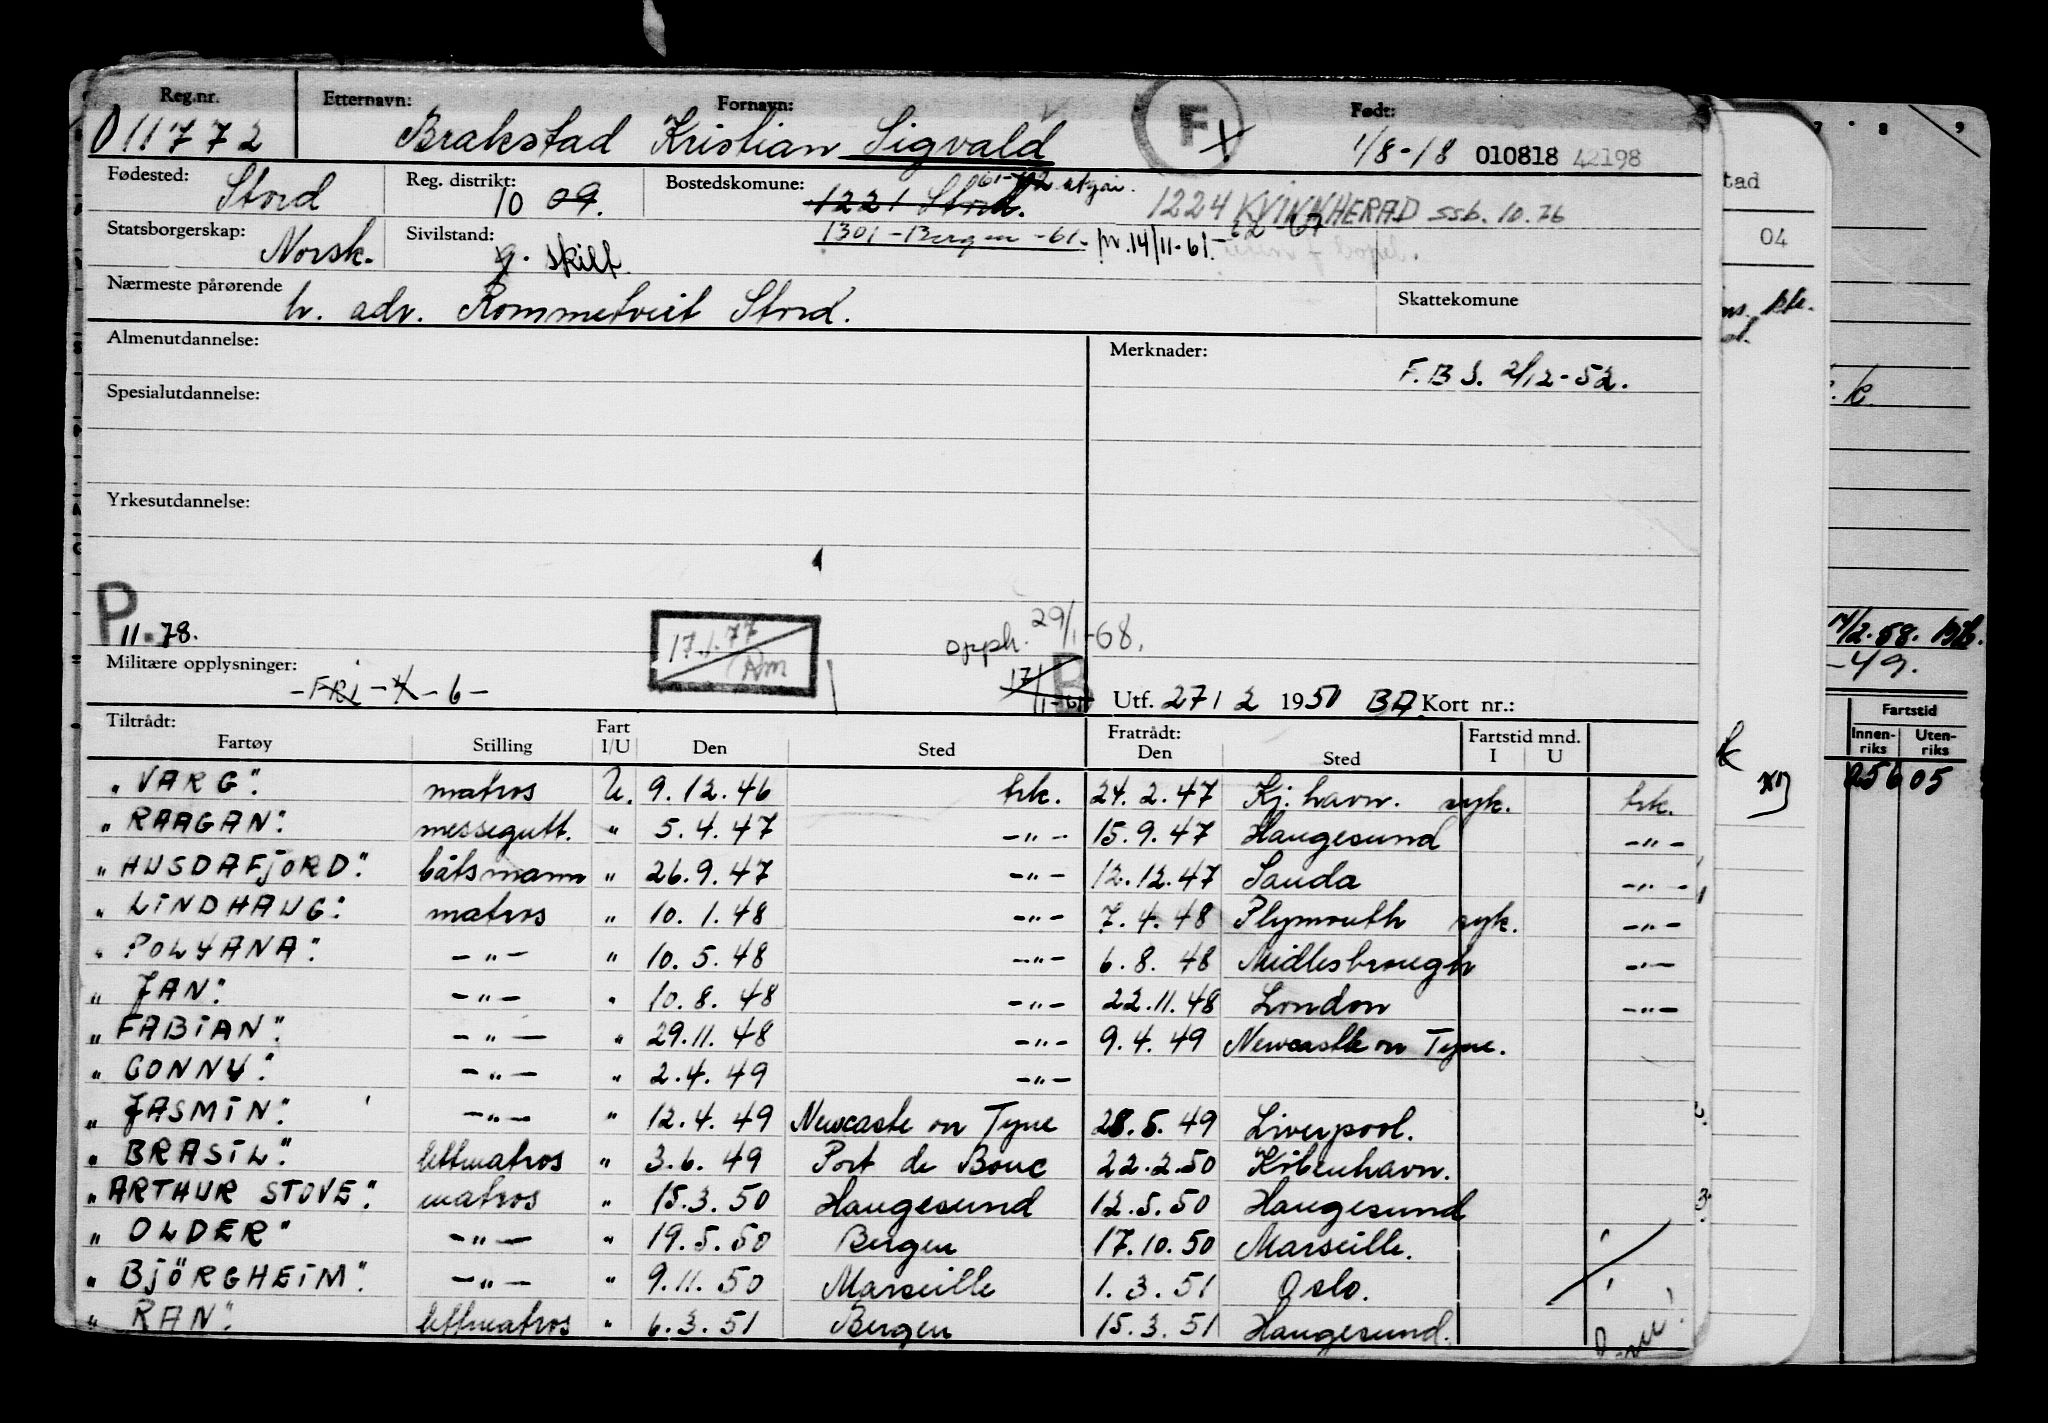 Reg.nr. Etternavn: Fornavn: F Født:
011772 Brakstad Kristian Sigvald X 1/8-18 010818 42198
Fødested: Stord Reg. distrikt: 10 09. Bostedskomune: 1221 Stord. 1224 KVINNHERAD ssb. 10.76
Statsborgerskap: Norsk. Sivilstand: g. skilt 1301-Bergen -61. pr. 14/11-61- 12-67
Nærmeste pårørende h. adr. Rommetveit Stord. Skattekomune
Almenutdannelse: Merknader:
F.B.S. 2/12-52.
Spesialutdannelse:
Yrkesutdannelse:
P. 11.78. 17.1.77 opph. 29/1-68.
Militære opplysninger: -FRi-4-6- 17/1-61 B Utf. 27/2 1951 BA. Kort nr.:
Tiltrådt: Fartøy Stilling Fart I/U Den Sted Fratrådt: Den Sted Fartstid mnd. I U
"VARG". matros U. 9.12.46 trk. 24.2.47 Kj.havn. syk. trk.
"RAAGAN". messegutt. " 5.4.47 -"- 15.9.47 Haugesund -"-
"HUSDAFJORD". båtsmann " 26.9.47 -"- 12.12.47 Sauda -"-
"LINDHAUG". matros " 10.1.48 -"- 7.4.48 Plymouth syk. -"-
"POLYANA". -"- " 10.5.48 -"- 6.8.48 Midlesbrough -"-
"JAN". -"- " 10.8.48 -"- 22.11.48 London -"-
"FABIAN". -"- " 29.11.48 -"- 9.4.49 Newcastle on Tyne.
"CONNY". -"- " 2.4.49 -"-
"JASMIN". -"- " 12.4.49 Newcaste on Tyne 28.5.49 Liverpool.
"BRASIL". lettmatros " 3.6.49 Port de Bouc 22.2.50 Köbenhavn.
"ARTHUR STOVE". matros " 15.3.50 Haugesund 12.5.50 Haugesund
"OLDER" -"- " 19.5.50 Bergen 17.10.50 Marseille.
"BJÖRGHEIM". -"- " 9.11.50 Marseille 1.3.51 Oslo.
"RAN". lettmatros " 6.3.51 Bergen 15.3.51 Haugesund.
tad
04
7 8 9
-49.
Fartstid
Innen-riks Uten-riks